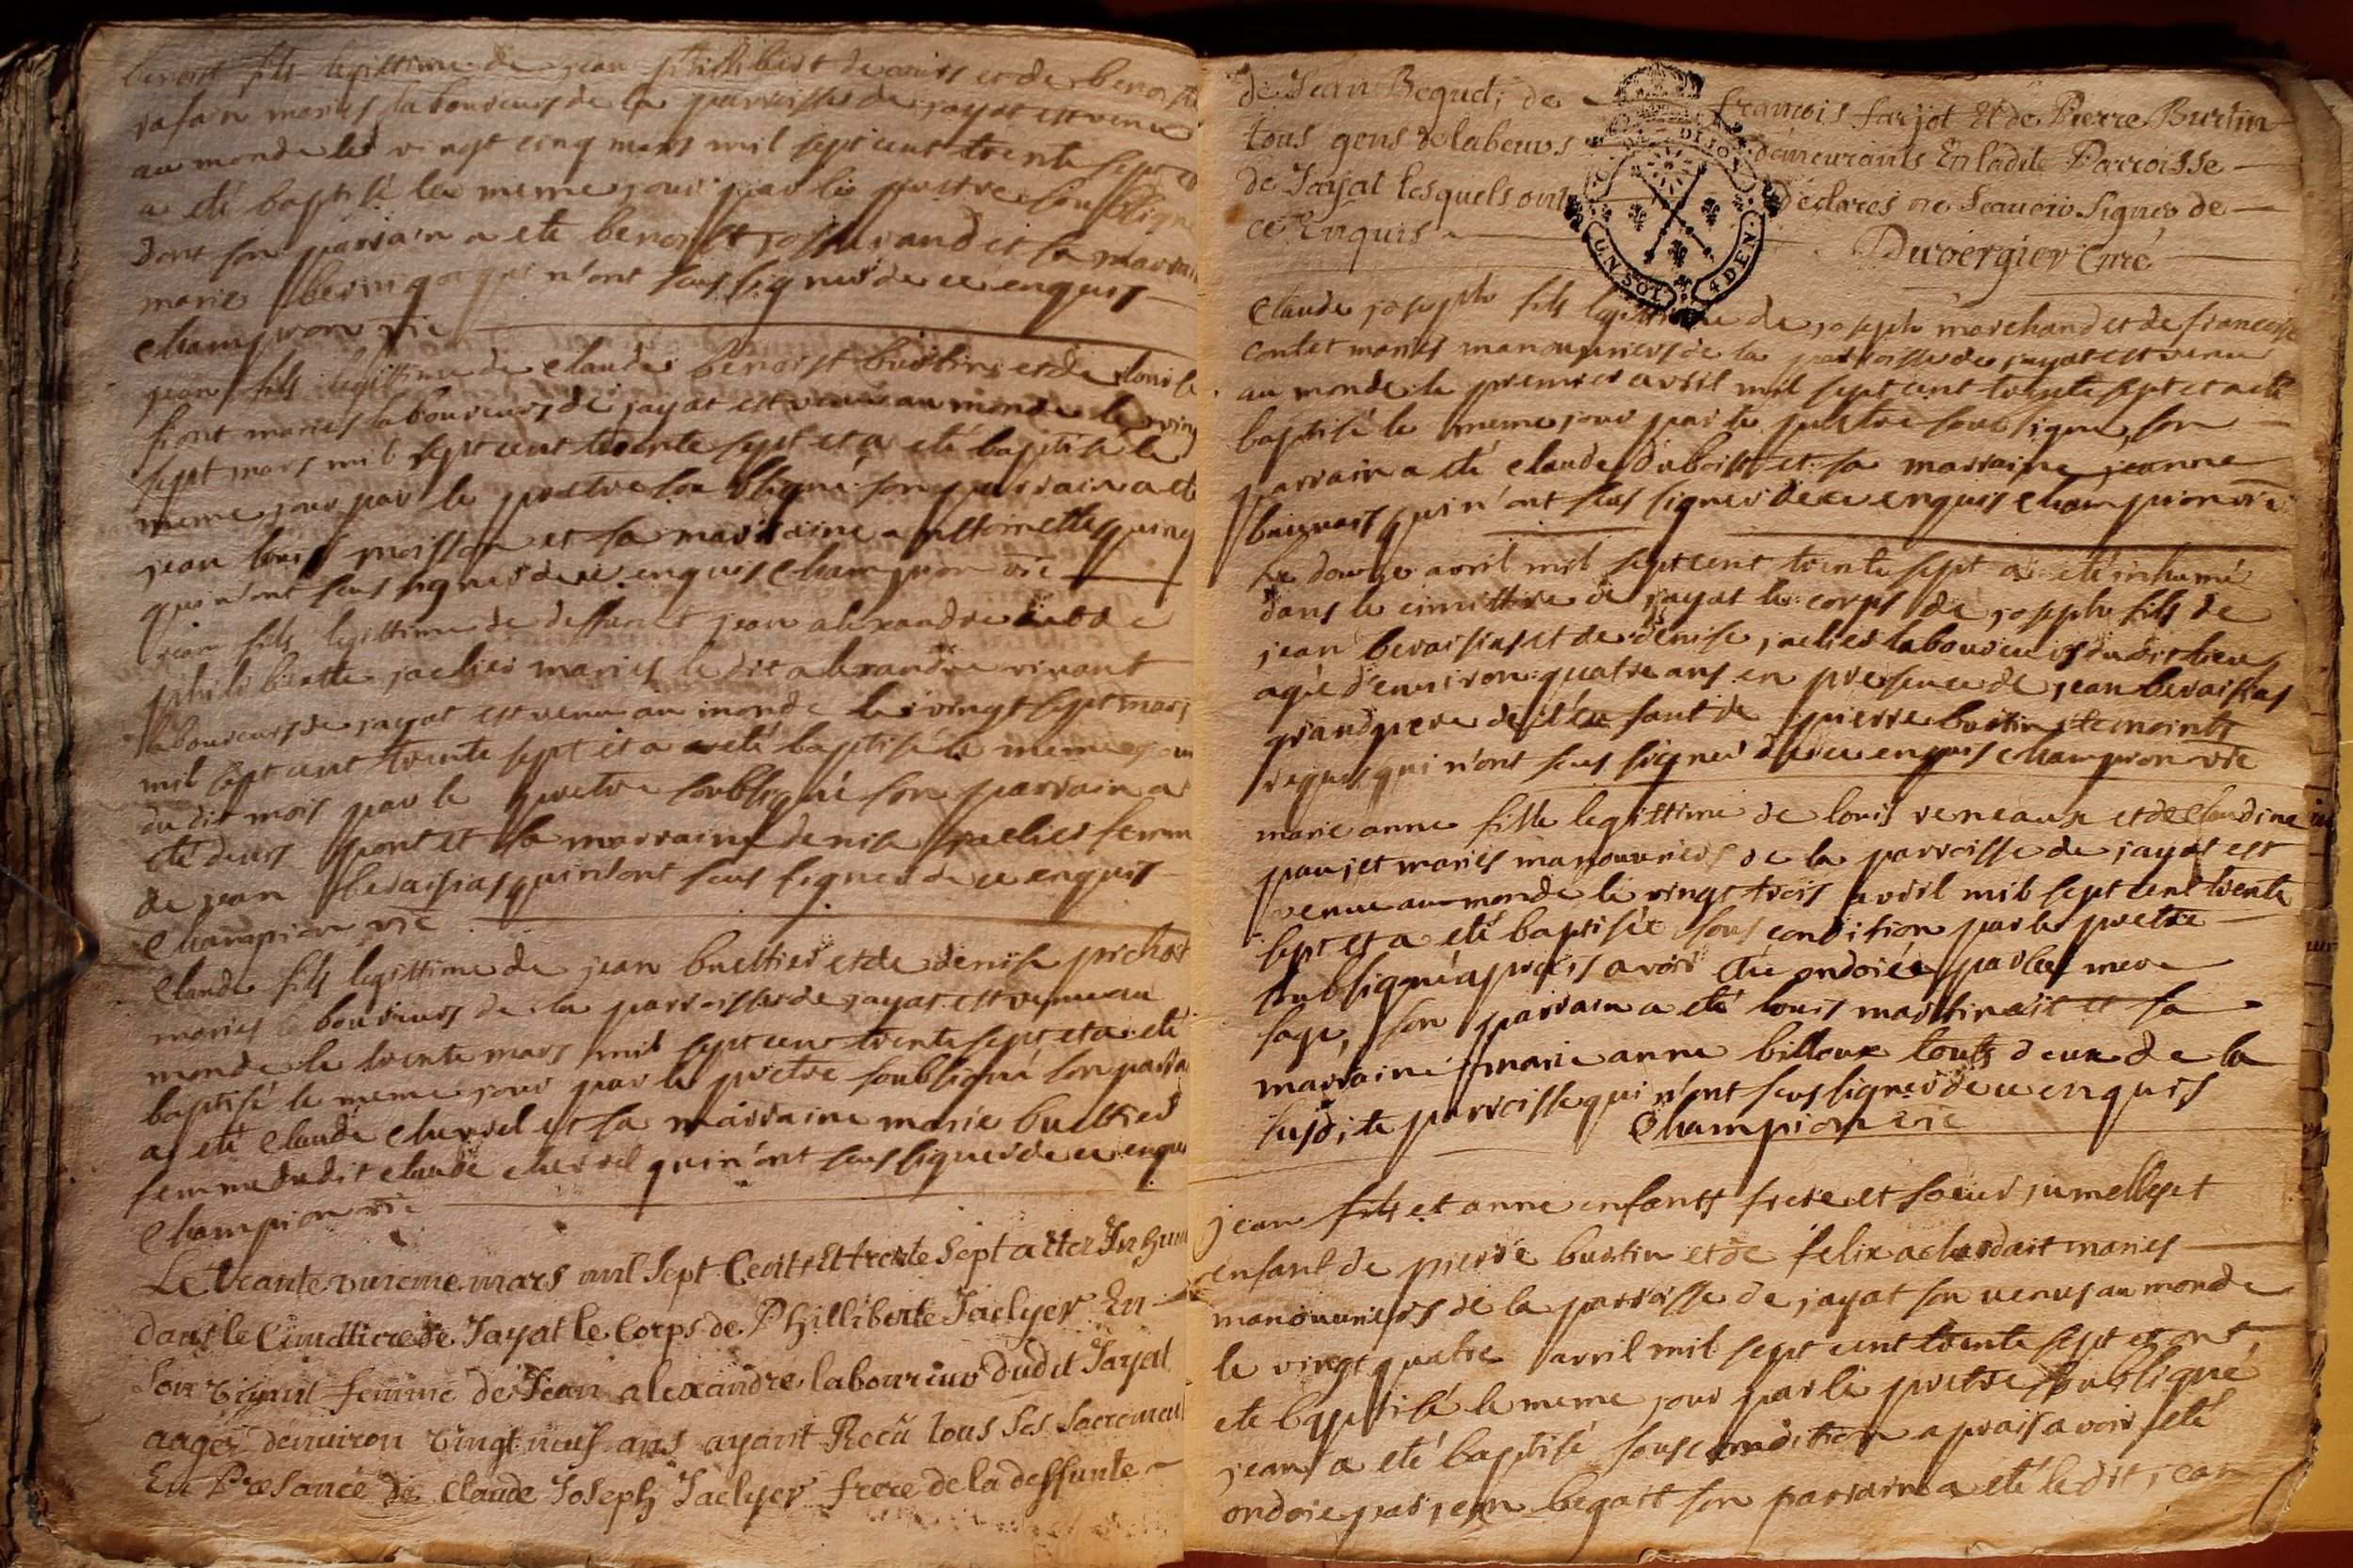 benoist fils legittime de jean philibert de cours et de benoiste
rafain mariés laboureurs de la parroisse de jayat est venu
au monde le vingt cinq mars mil sept cent trente sept et
a eté baptisé le meme jour par le pretre soubsigné
dont son parrain a eté benoist josserand et sa marraine
marie qui n'ont seus signer de ce enquis
Champion vic
jean fils legittime de claude benoist burtin et de louise
pont mariés laboureurs de jayat est venu au monde le vingt
sept mars mil sept cent trente sept et a eté baptisé le
meme jour par le pretre soubsigné son parrain a eté
jean louis moisson et sa marraine anthoinette
qui n'ont seus signer de ce enquis Champion vic
jean fils legittime de deffunct jean alexandre et de
philiberte jaclier mariés le dit alexandre vivant
laboureurs de jayat est venu au monde le vingt sept mars
mil sept cent trente sept et a eté baptisé le meme jour
du dit mois par le pretre soubsigné son parrain a
eté denis pont et sa marraine denise jaclier femme
de jean beraisias qui n'ont seus signer de ce enquis
Champion vic
Claude fils legittime de jean buettier et de denise pichot
mariés laboureurs de la parroisse de jayat est venu au
monde le trente mars mil sept cent trente sept et a eté
baptisé le meme jour par le pretre soubsigné son parrain
a eté Claude chevrel et sa marraine marie buettier
femme du dit claude chevrel qui n'ont seus signer de ce enquis
Champion vic
Le trante unieme mars mil Sept Cents Et trente Sept a éter Inhumé
dans le Cimettiere de Jayat le Corps de Philliberte Jaclyer En
Son vivant femme de Jean alexandre laboureur dudit Jayat
aagée denviron vingt neuf ans ayant Recü tous Ses Sacrements
En Presance de Claude Joseph Jaclyer frere de la deffunte
de Jean Bequet; de francois farjot Et de Pierre Burtin
tous gens de labeurs demeurants En ladite Parroisse
de Jayat lesquels ont déclarés ne Scauoir Signer de
ce Enquis Duvergier Curé
Claude joseph fils legittime de joseph marchand et de francoise
contet mariés manouuriers de la parroisse de jayat est venu
au monde le premier avril mil sept cent trente sept et a eté
baptisé le meme jour par le pretre soubsigné, son
parrain a eté claude duboist et sa marraine jeanne
qui n'ont seus signer de ce enquis Champion vic
Le douze avril mil sept cent trente sept a eté inhumé
dans le cimittire de jayat le corps de joseph fils de
jean beraisias et de denise jaclier laboureurs du dit lieu
agé d'environ quatre ans en presence de jean beraisias
grand pere de l'enfant de pierre burtin temoints
requis qui n'ont seus signer de ce enquis Champion vic
marie anne fille legittime de louis reneaux et de claudine
paujet mariés manouuriers de la parroisse de jayat est
venue au monde le vingt trois avril mil sept cent trente
sept et a eté baptisée sous condition par le pretre
soubsigné aprais avoir eté ondoiée par la mere
sage, son parrain a eté louis et sa
marraine marie anne billoux touts deux de la
susdite parroisse qui n'ont seus signer de ce enquis
Champion vic
jean fils et anne enfants frere et soeur jumelles et
enfant de pierre burtin et de felix mariés
manouuriers de la parroisse de jayat son venus au monde
le vingt quatre avril mil sept cent trente sept et ont
eté baptisé le meme jour par le pretre soubsigné
jean a eté baptisé sous condition aprais avoir eté
ondoie par jean begait son parrain a eté le dit jean